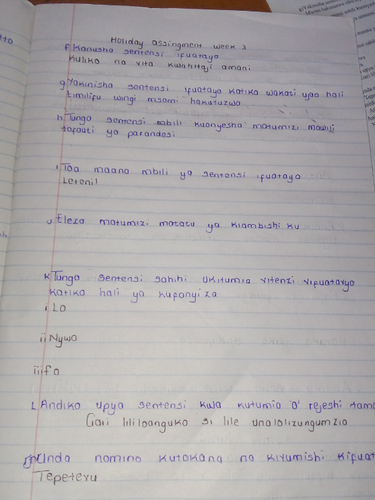 Holiday assingment week 3
f Kanusha sentensi ifuatayo
Kuliko na vita kwahitaji amani
g Yakinisha sentensi ifuatayo katika wakati upo hali
timilifu wingi msomi hakutuzwa
h Tunga sentensi mbili kuonyesha matumizi mawili
tofauti ya parandesi
i Toa maana mbili ya sentensi ifuatayo
Leteni!
J Eleza matumizi matatu ya kiambishi ku
K Tunga sentensi sahihi ukitumia vitenzi vifuatavyo
katika hali ya kufanyiza
i La
ii Nywa
iii fa
L Andika upya sentensi kwa kutumia 'o' rejeshi tama
Gari lililoanguka si lile unalolizungumzia
Unda nomino kutokana na kivumishi kifuat
Tepetevu